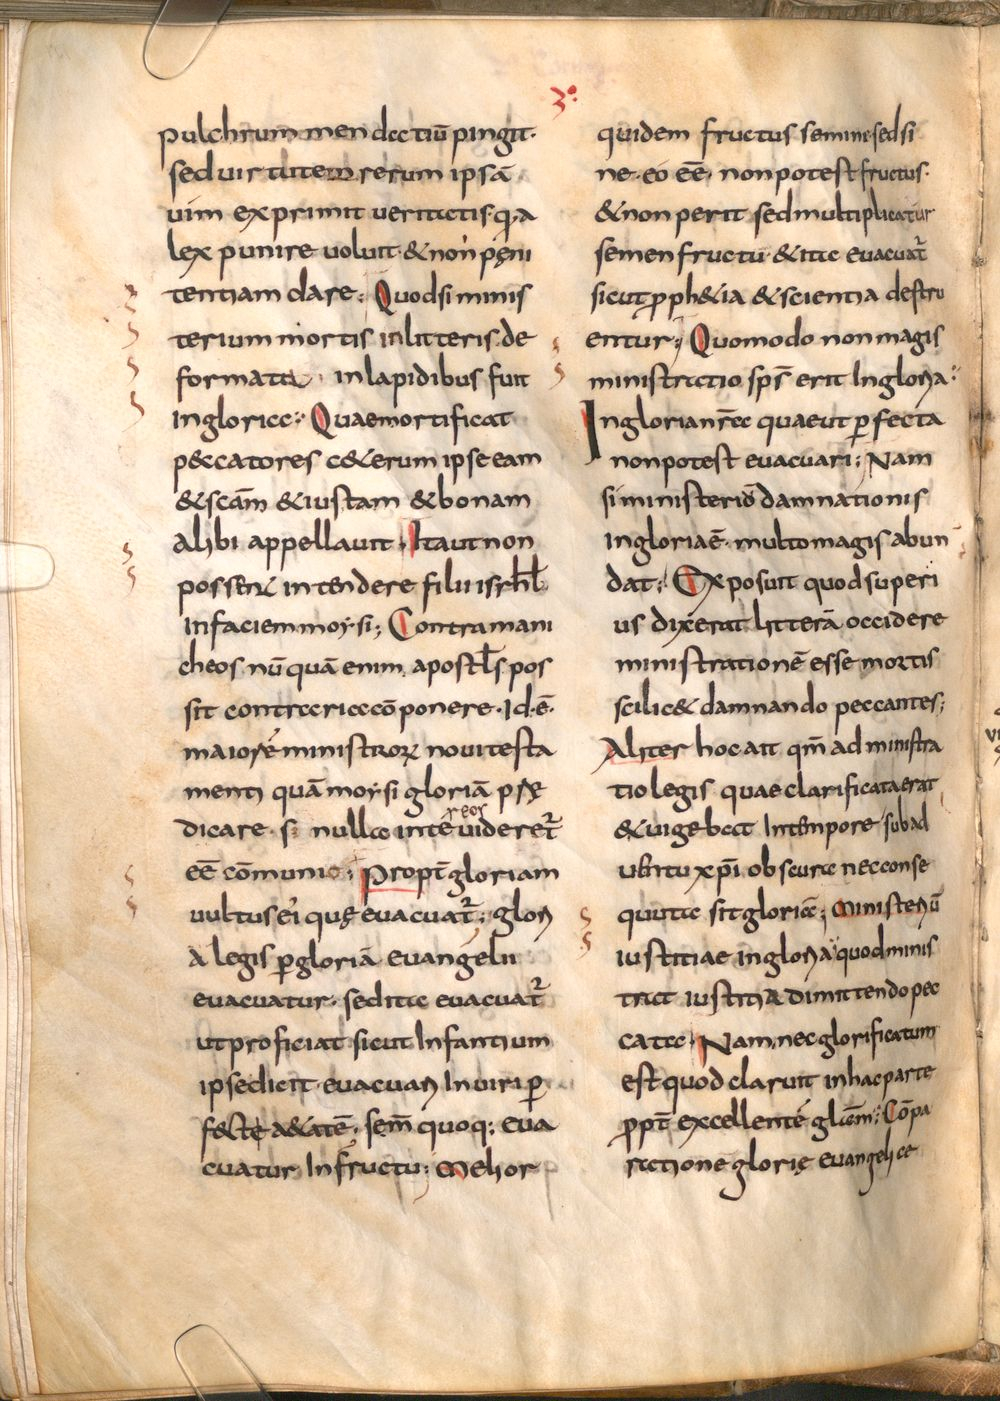 3º
pulchrum mendaciū pingit·
sed uirtutem rerum ipsā
uim exprimit ueritatis· q,a
lex punire uoluit· & non pęni
tentiam dare; Quodsi minis
terium mortis inlitteris de
formata· inlapidibus fuit
ingloria:· Quae mortificat
peccatores c&erum ipse eam
& scām & iustam & bonam
alibi appellauit· Itaut non
possenꝛ intendere filii isrhł
infaciem moysi; Contra mani
cheos nū quā enim apostłs pos
sit contraria cōponere· Id·ē·
maiorē ministroꝛ noui testa
menti quā moysi gloriā pre
dicare· si nulla inter eos uideret̄
eē cōmunio; Propt̄ gloriam
uultus ei quę euacuat̄; glori
a legis ꝑ gloriā euangelii
euacuatur· sed ita euacuat̄
ut proficiat sicut Infantium
ipse dicit· euacuari In uiri ꝑ
fecte aetatē· sem̄ quoq; eua
cuatur In fructu; Melior
quidem fructus semine· sed si
ne· eo eē· non potest fructus·
& non perit sed multiplicatur
semen fructu· & ita euacuat̄
sicut ꝓph&ia & scientia destru
entur; Quomodo non magis
ministratio sp̄s erit Ingloria:·
Ingloria nr̄a quae ut ꝑfecta
non potest euacuari; Nam
si ministeriō damnationis
ingloria ē· multo magis abun
dat; Exposuit quod superi
us dixerat litterā occidere
ministrationē esse mortis
scilic& damnando peccantes;
Aliter hoc ait qm̄ administra
tio legis quae clarificata erat
& uigebat In tempore sub ad
uentu xp̄i obscura nec conse
quuta sit gloriā; Ministeriū
iustitiae in gloria· quod minis
trat iustitia dimittendo pec
cata· Nam nec glorificatum
est quod claruit in hac parte
ꝓpt̄ excellentē glām; Cōpa
ratione glorię euangelicae